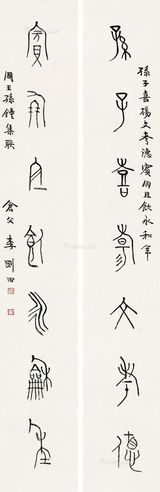 孫子喜揚文考德賓朋且飲永和年
孫子喜揚文考德
賓朋且飲永龢年
周王孫鐘集联
倉父李剛田